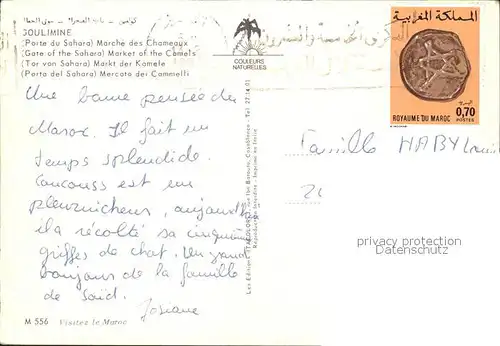 GOULIMINE
(Porte du Sahara) Marche des Chameaux
(Gate of the Sahara) Market of the Camels
(Tor van Sahara) Markt der Kamele
(Porta del Sahara) Mercato dei Cammelli
Une bonne pensée du
Maroc. Il fait un
temps splendide.
Couscouss est un
pleurnicheur, aujourd'hui
il a récolté sa cinquième
griffes de chat. Un grand
bonjour de la famille
de Saïd.
Josiane
M 556 Visitez le Maroc
COULEURS
NATURELLES
Reproduction Interdite - Imprimé en Italie
المملكة المغربية
0,70
ROYAUME DU MAROC
POSTES
Famille HABY Louis
privacy protection
Datenschutz